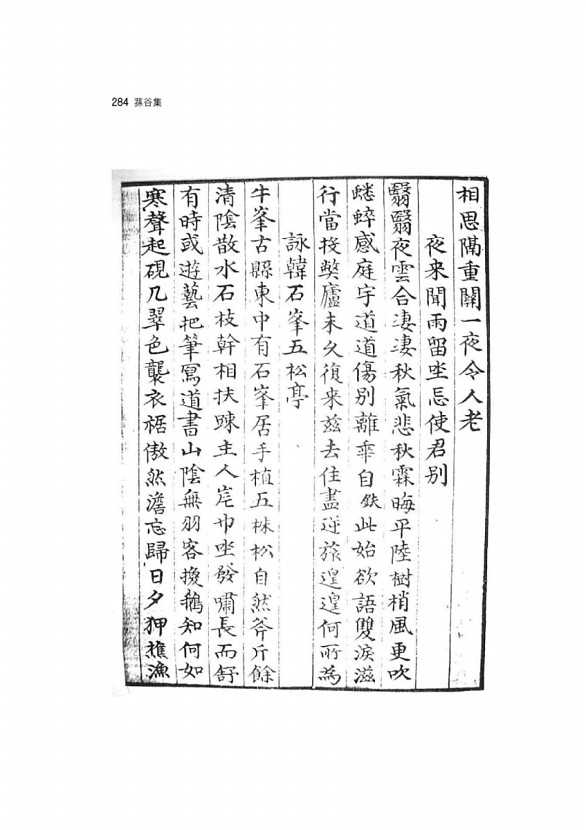 284 蓀谷集
相思隔重關一夜令人老
夜來聞雨留坐忘使君別
翳翳夜雲合凄凄秋氣悲秋霖晦平陸樹梢風更吹
蟋蟀感庭宇道道傷別離乖自此始欲語雙淚滋
行當授獘廬未久復来兹去住盡逆旅遑遑何所爲
詠韓石峯五松亭
牛峯古縣東中有石峯居手植五株松自然斧斤餘
清陰散水石枝幹相扶踈主人岸巾坐發嘯長而舒
有時或遊藝把筆寫道書山陰無羽客換鵝知何如
寒聲起硯几翠色襲衣裾傲然澹忘歸日夕狎樵漁